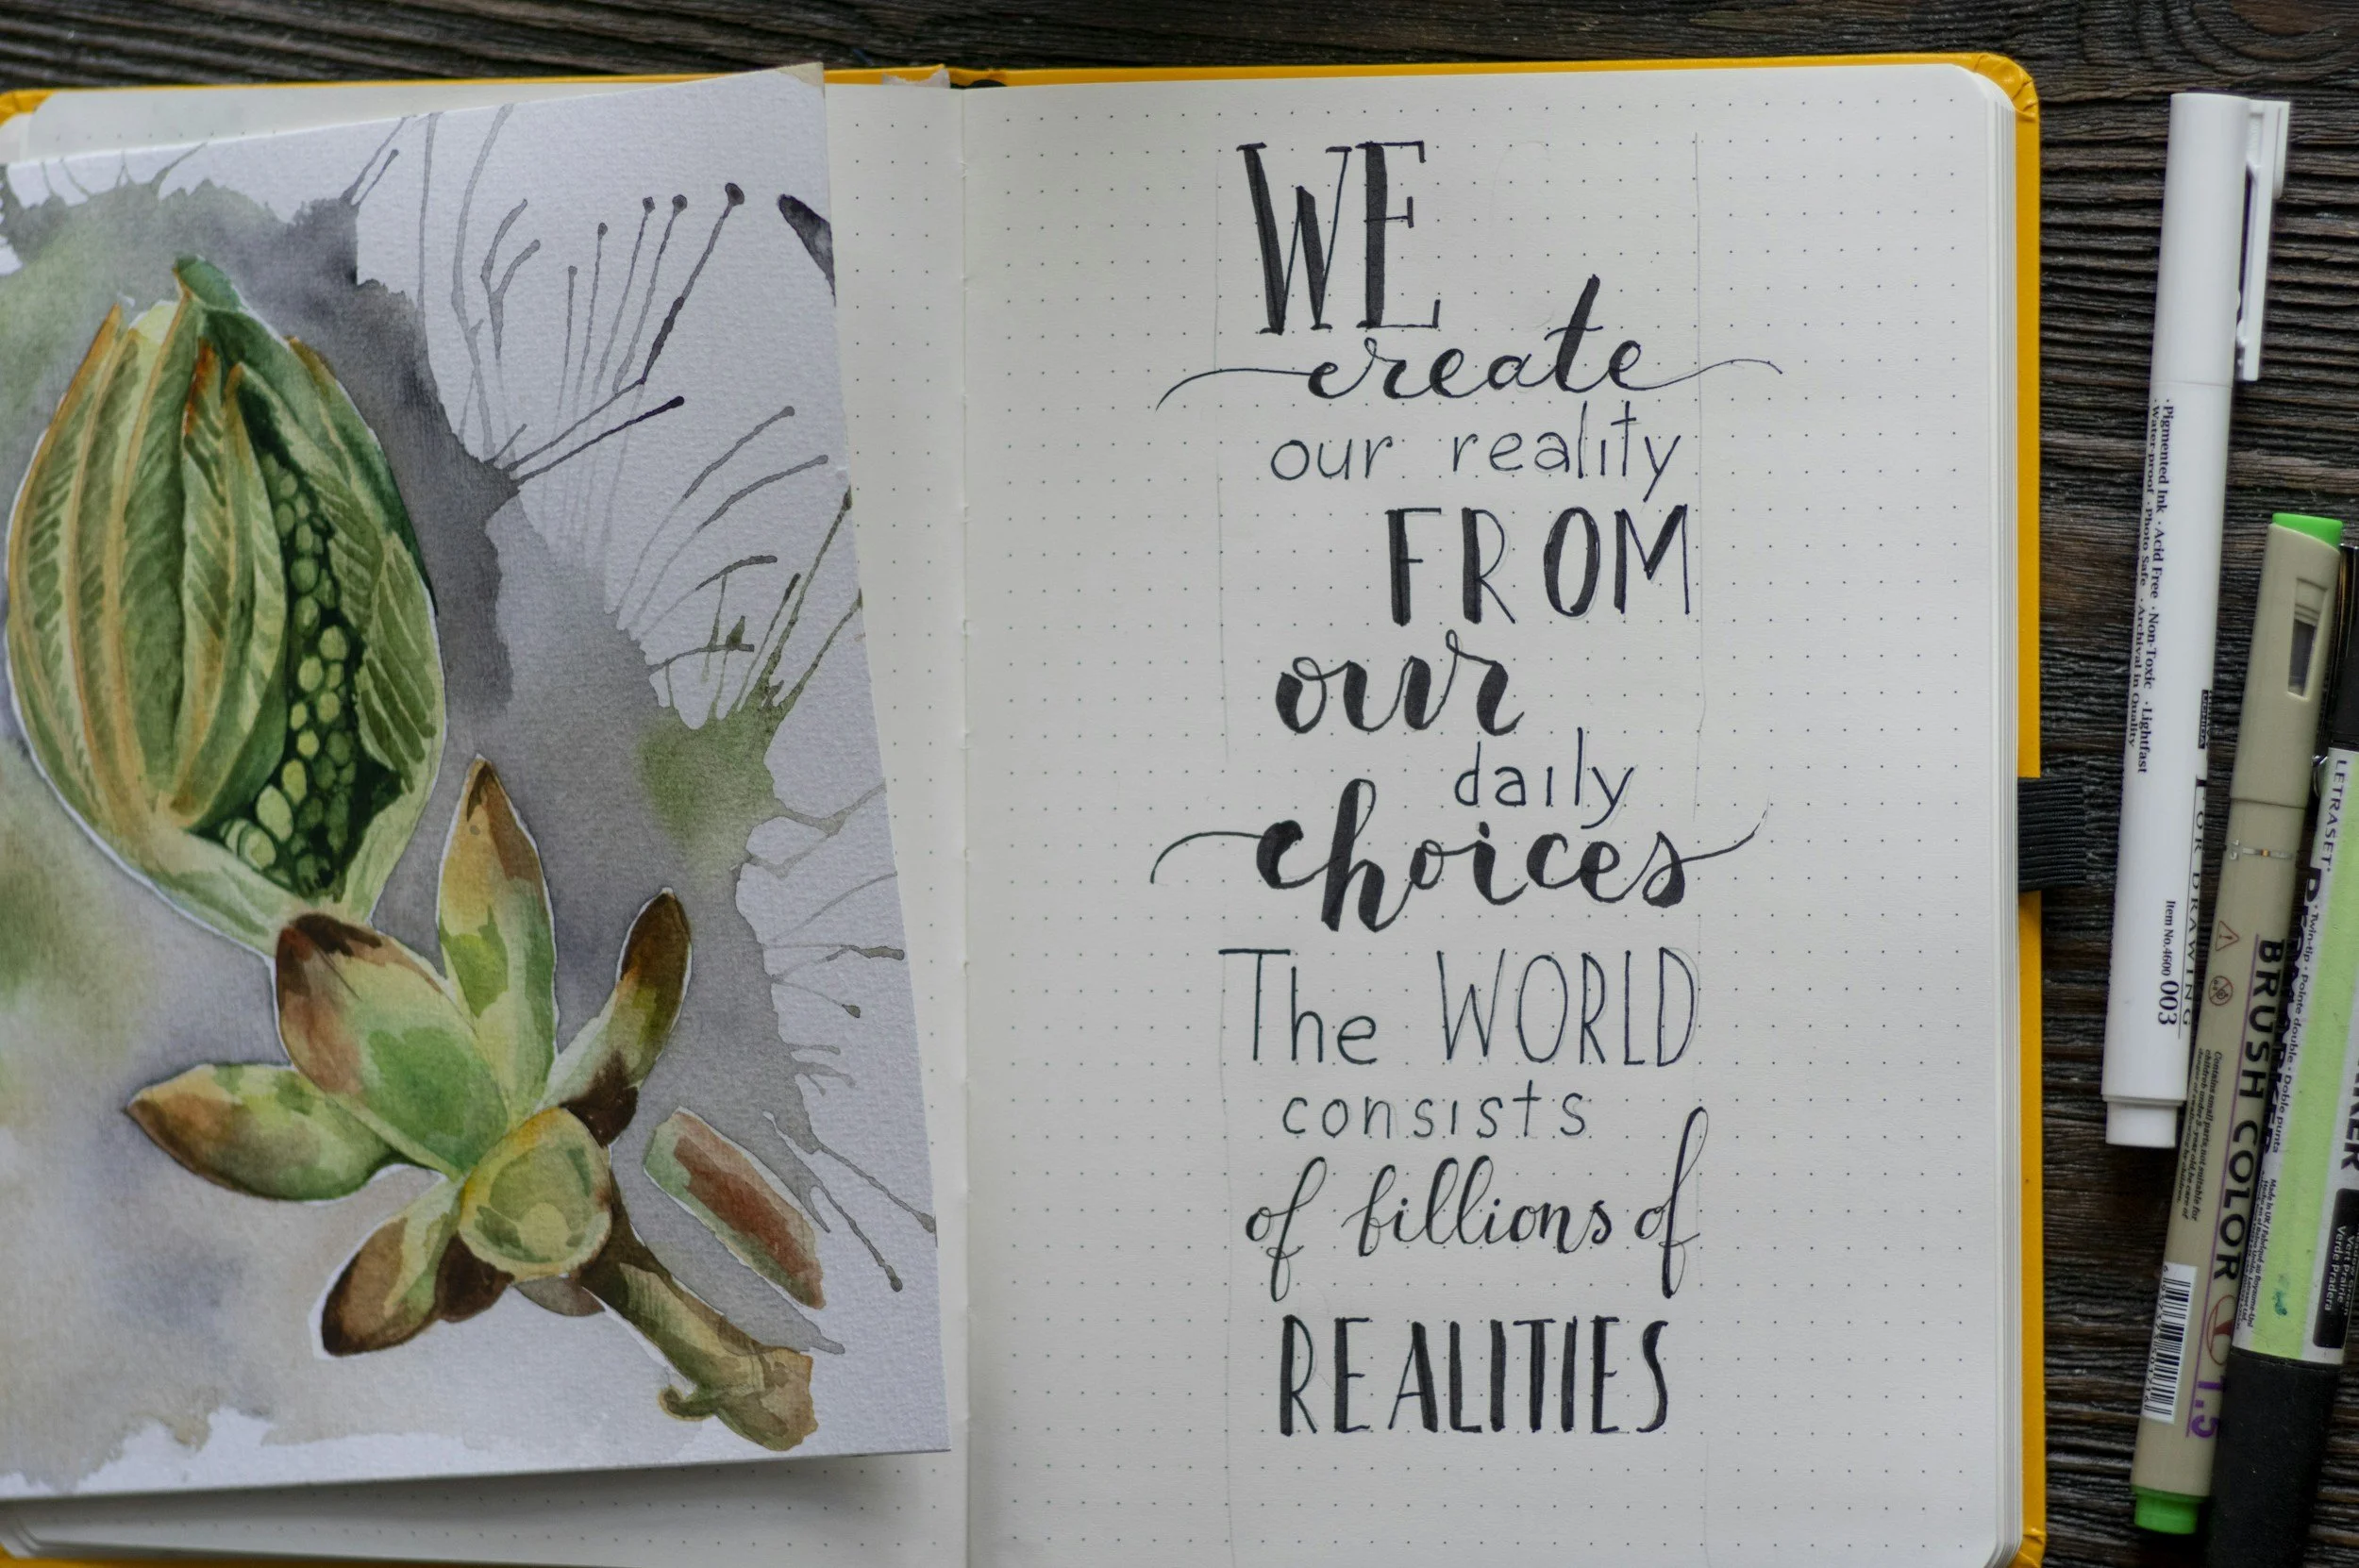 WE
create
our reality
FROM
our
daily
choices
The WORLD
consists
of billions of
REALITIES
·Pigmented Ink ·Acid Free ·Non-Toxic ·Lightfast
·Water-proof ·Photo Safe ·Archival in Quality
FOR DRAWING
Item No.4600 003
BRUSH COLOR
1.5
LETRASET
Vert Prairie
Verde Pradera